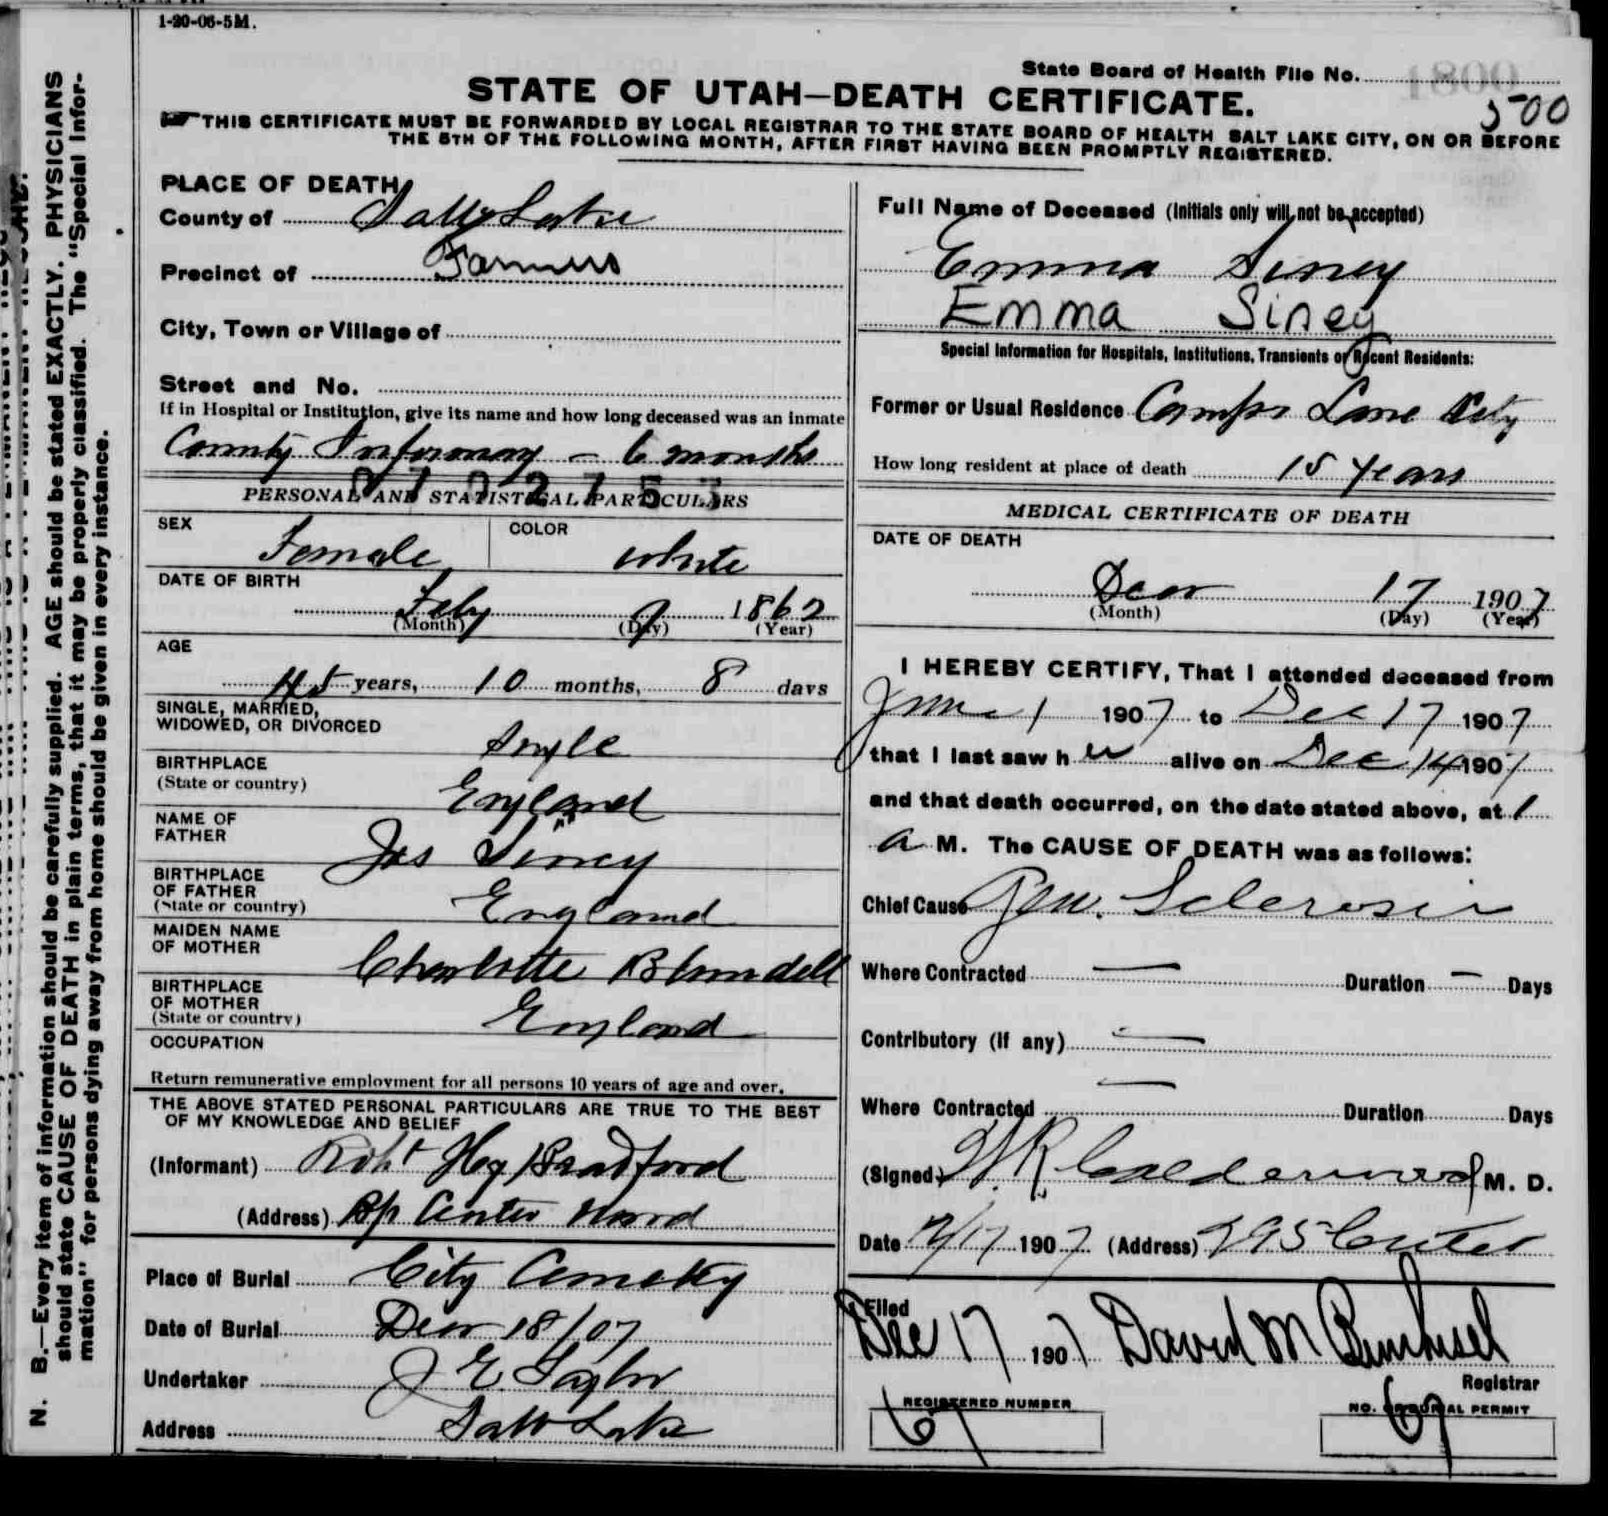 1-20-06-5M.
State Board of Health File No. 1800
500
STATE OF UTAH—DEATH CERTIFICATE.
THIS CERTIFICATE MUST BE FORWARDED BY LOCAL REGISTRAR TO THE STATE BOARD OF HEALTH SALT LAKE CITY, ON OR BEFORE
THE 5TH OF THE FOLLOWING MONTH, AFTER FIRST HAVING BEEN PROMPTLY REGISTERED.
N. B.—Every item of information should be carefully supplied. AGE should be stated EXACTLY. PHYSICIANS
should state CAUSE OF DEATH in plain terms, that it may be properly classified. The "Special Infor-
mation" for persons dying away from home should be given in every instance.
PLACE OF DEATH
County of Salt Lake
Precinct of Farmers
City, Town or Village of
Street and No.
If in Hospital or Institution, give its name and how long deceased was an inmate
County Infirmary - 6 months
PERSONAL AND STATISTICAL PARTICULARS
SEX Female COLOR White
DATE OF BIRTH
Feby 9 1862
(Month) (Day) (Year)
AGE
45 years, 10 months, 8 days
SINGLE, MARRIED,
WIDOWED, OR DIVORCED Single
BIRTHPLACE
(State or country) England
NAME OF
FATHER Jas Siney
BIRTHPLACE
OF FATHER
(State or country) England
MAIDEN NAME
OF MOTHER Charlotte Blundell
BIRTHPLACE
OF MOTHER
(State or country) England
OCCUPATION
Return remunerative employment for all persons 10 years of age and over.
THE ABOVE STATED PERSONAL PARTICULARS ARE TRUE TO THE BEST
OF MY KNOWLEDGE AND BELIEF
(Informant) Robt Hy Bradford
(Address) Bp Center Ward
Place of Burial City Cemetery
Date of Burial Decr 18/07
Undertaker J E. Taylor
Address Salt Lake
Full Name of Deceased (Initials only will not be accepted)
Emma Siney
Emma Siney
Special Information for Hospitals, Institutions, Transients or Recent Residents:
Former or Usual Residence Camps Lane City
How long resident at place of death 15 years
MEDICAL CERTIFICATE OF DEATH
DATE OF DEATH
Decr 17 1907
(Month) (Day) (Year)
I HEREBY CERTIFY, That I attended deceased from
June 1 1907 to Dec 17 1907
that I last saw h er alive on Dec 14 1907
and that death occurred, on the date stated above, at 1
a M. The CAUSE OF DEATH was as follows:
Chief Cause Gen. Sclerosis
Where Contracted — Duration — Days
Contributory (if any) —
—
Where Contracted Duration Days
(Signed) W. R. Calderwood M. D.
Date 12/17 1907 (Address) 295 Center
Filed
Dec 17 1907 David M
Registrar
REGISTERED NUMBER NO. OF BURIAL PERMIT
67 67